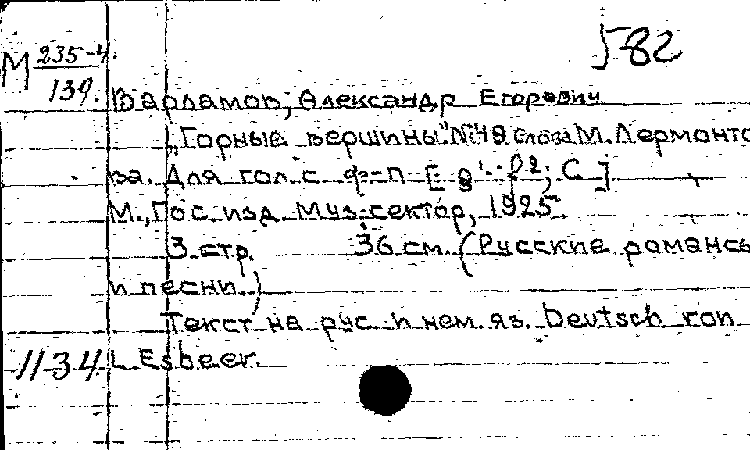 582
М 235-4.
139.
Варламов, Александр Егорович
„Горные вершины" №48 слова М. Лермонто
ва. Для гол. с ф-п [g'-f2; C]
М., Гос. изд. Муз. сектор, 1925.
3 стр. 36 см. (Русские романсы
и песни.)
Текст на рус. и нем. яз. Deutsch von
1134 L. Esbeer.